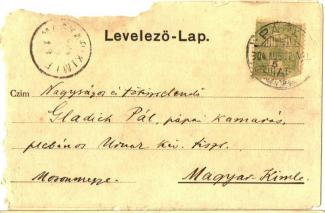 Levelező-Lap.
Czim Nagyságos és főtisztelendő
Gladich Pál, pápai kamarás,
plébános Urnak
Mosonmegye. Magyar-Kimle.